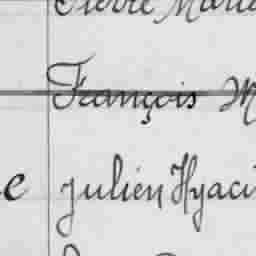 Pierre Marie
François M
e Julien Hyaci